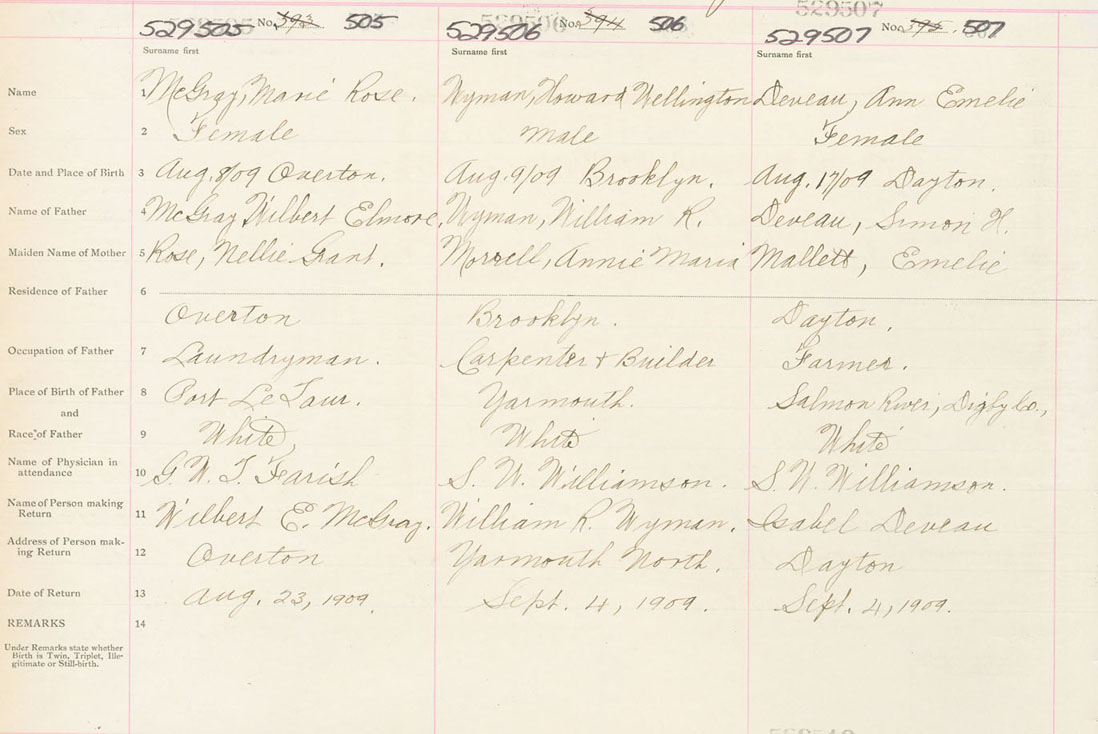 529505 No. 393 505 529506 No. 394 506 529507 No. 395 507
Surname first Surname first Surname first
Name 1 McGray, Marie Rose. Wyman, Howard Wellington Deveau, Ann Emelie
Sex 2 Female Male Female
Date and Place of Birth 3 Aug. 8/09 Overton. Aug. 9/09 Brooklyn. Aug. 17/09 Dayton.
Name of Father 4 McGray, Wilbert Elmore. Wyman, William R. Deveau, Simon H.
Maiden Name of Mother 5 Rose, Nellie Grant. Morrell, Annie Maria Mallett, Emelie
Residence of Father 6
Overton Brooklyn. Dayton.
Occupation of Father 7 Laundryman. Carpenter & Builder Farmer.
Place of Birth of Father 8 Port LeTour. Yarmouth. Salmon River, Digby Co.,
and
Race of Father 9 White, White White
Name of Physician in
attendance 10 G. W. T. Farish S. W. Williamson. S. W. Williamson.
Name of Person making
Return 11 Wilbert E. McGray. William R. Wyman. Isabel Deveau
Address of Person mak-
ing Return 12 Overton Yarmouth North. Dayton
Date of Return 13 Aug. 23, 1909. Sept. 4, 1909. Sept. 4, 1909.
REMARKS 14
Under Remarks state whether
Birth is Twin, Triplet, Ille-
gitimate or Still-birth.